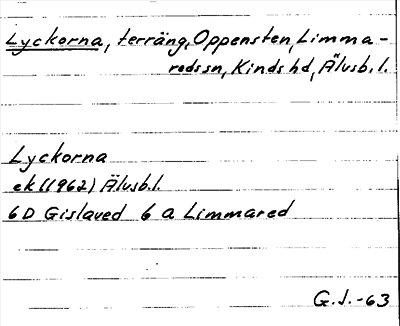 Lyckorna, terräng, Oppensten, Limma-
reds sn, Kinds hd, Älvsb. l.
Lyckorna
ek (1962) Älvsb. l.
6D Gislaved 6 a Limmared
G.J. -63